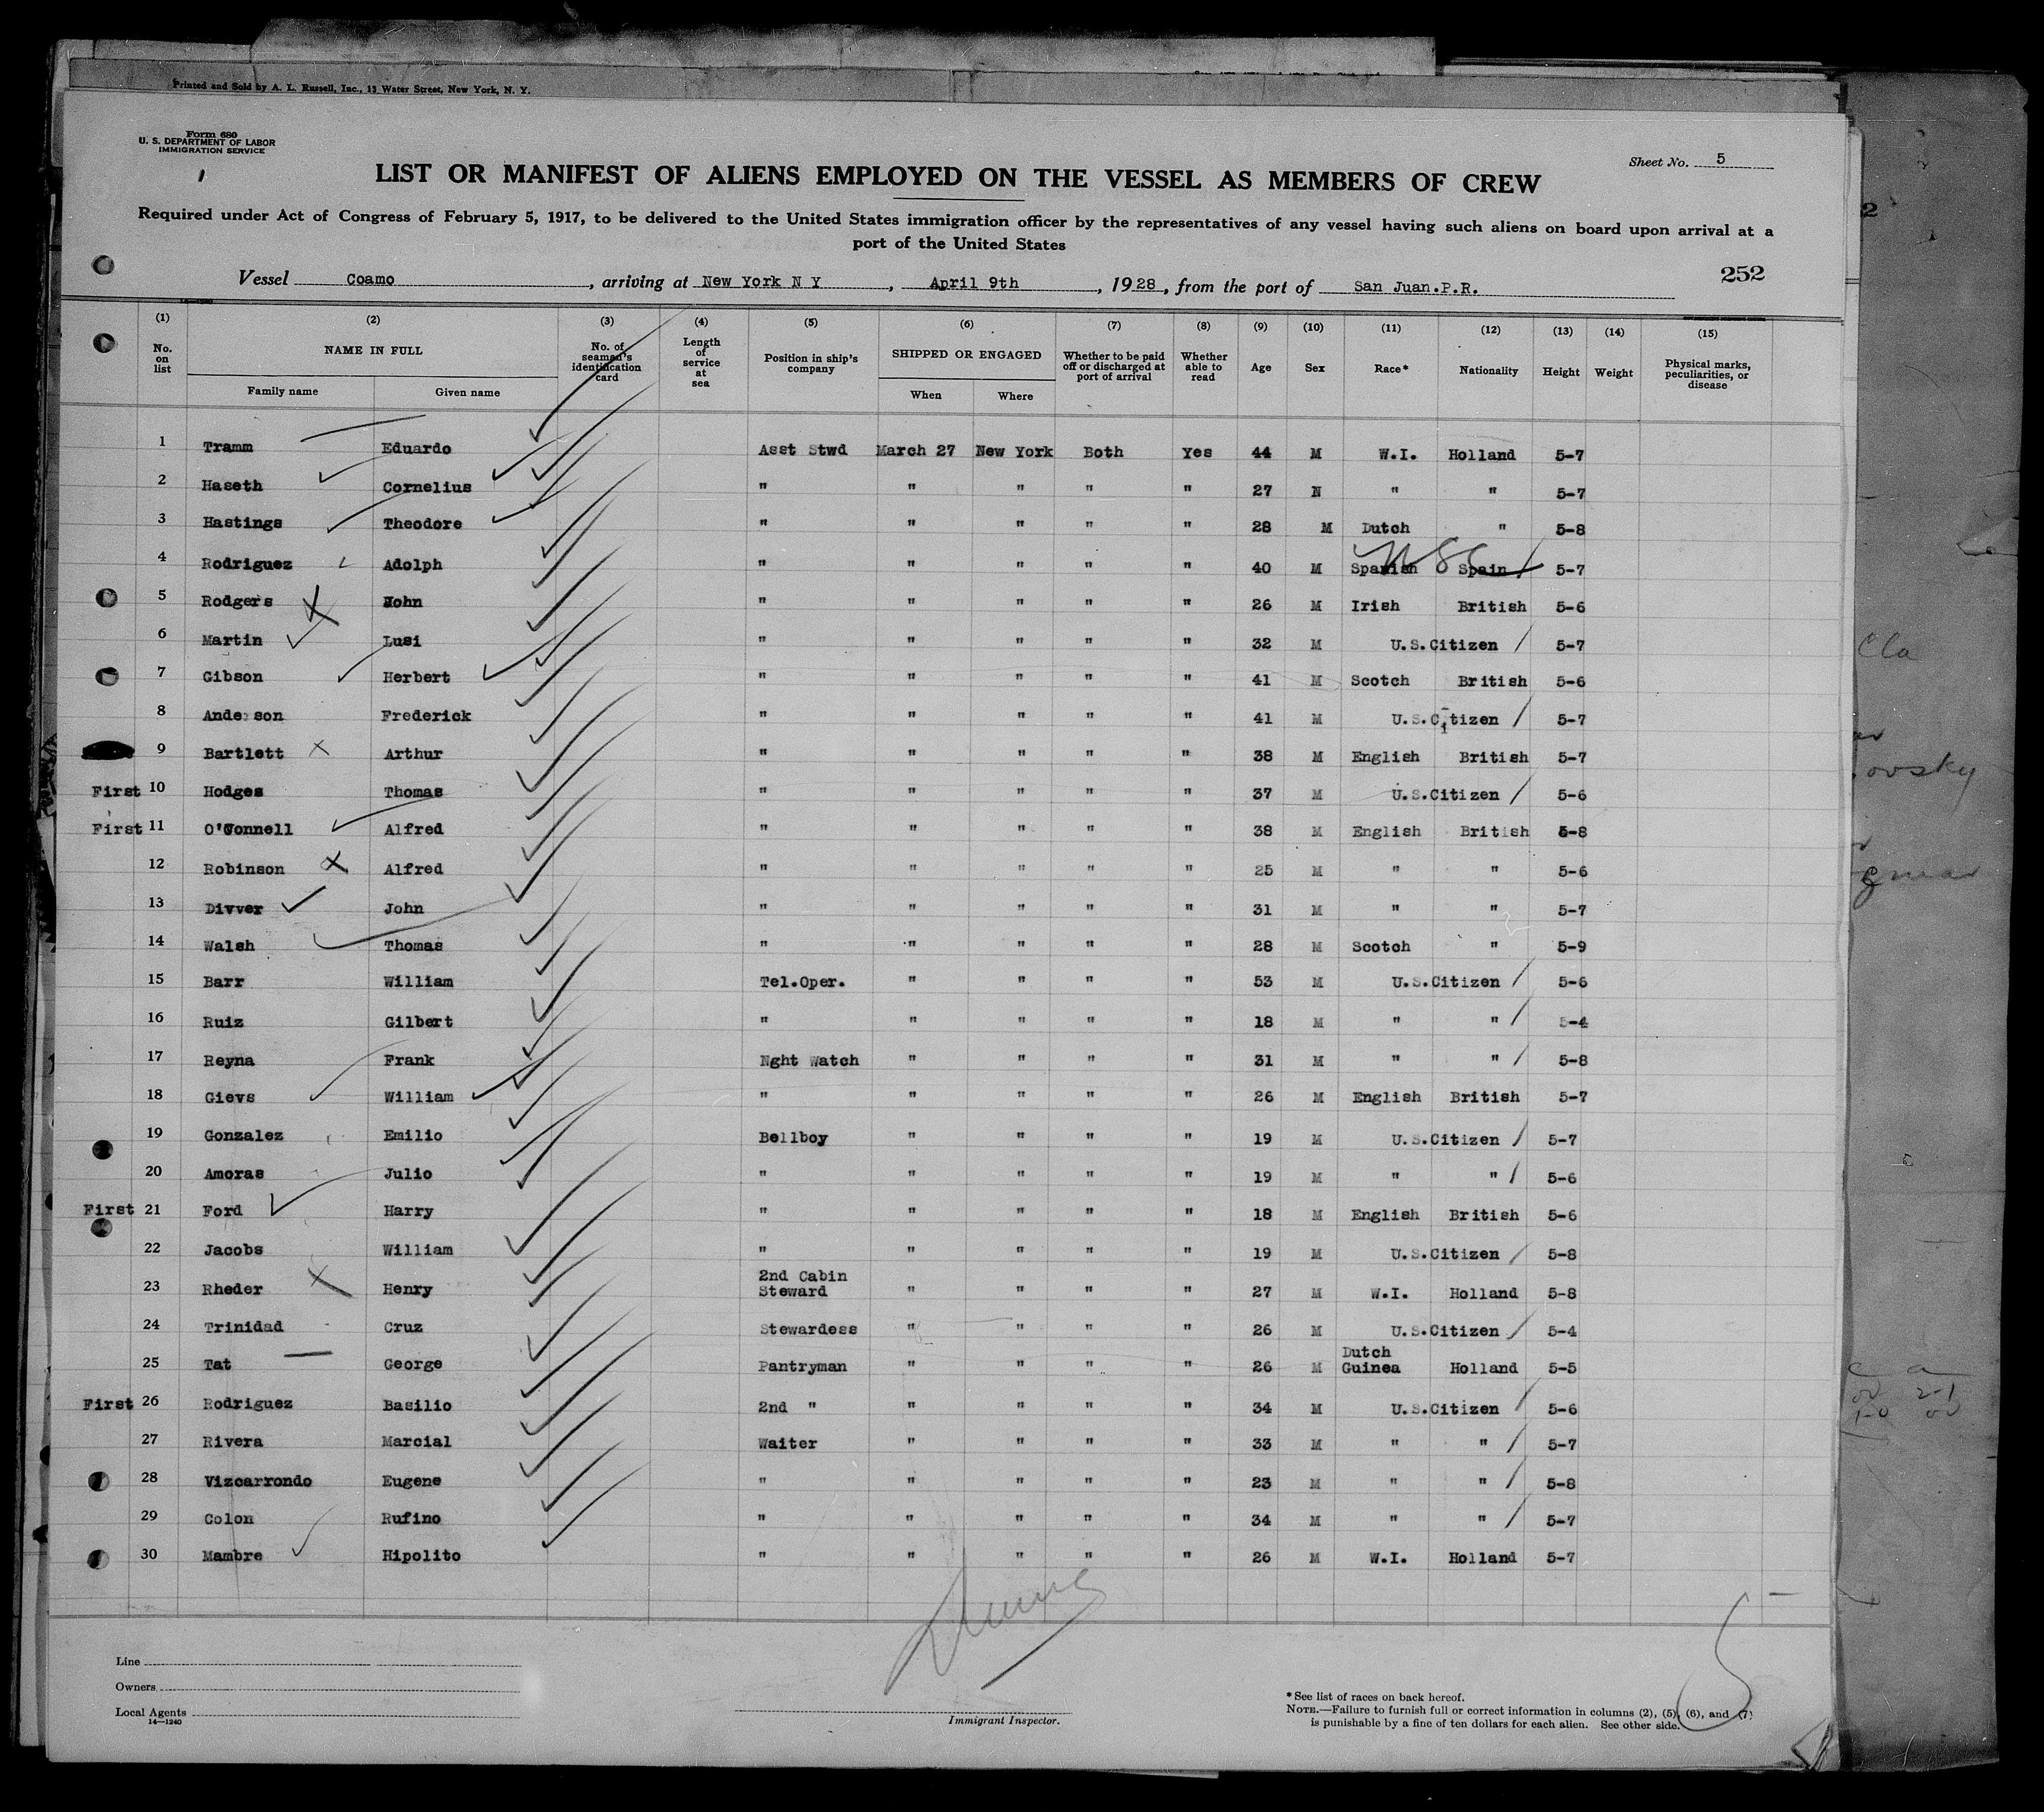 Printed and Sold by A. L. Russell, Inc., 13 Water Street, New York, N. Y.
Form 680
U. S. DEPARTMENT OF LABOR
IMMIGRATION SERVICE
Sheet No. 5
LIST OR MANIFEST OF ALIENS EMPLOYED ON THE VESSEL AS MEMBERS OF CREW
Required under Act of Congress of February 5, 1917, to be delivered to the United States immigration officer by the representatives of any vessel having such aliens on board upon arrival at a
port of the United States
252
Vessel Coamo, arriving at New York N Y, April 9th, 1928, from the port of San Juan.P.R.
(1) (2) (3) (4) (5) (6) (7) (8) (9) (10) (11) (12) (13) (14) (15)
No. on list NAME IN FULL No. of seaman's identification card Length of service at sea Position in ship's company SHIPPED OR ENGAGED Whether to be paid off or discharged at port of arrival Whether able to read Age Sex Race* Nationality Height Weight Physical marks, peculiarities, or disease
Family name Given name When Where
1 Tramm Eduardo Asst Stwd March 27 New York Both Yes 44 M W.I. Holland 5-7
2 Haseth Cornelius " " " " " 27 N " " 5-7
3 Hastings Theodore " " " " " 28 M Dutch " 5-8
4 Rodriguez Adolph " " " " " 40 M Spanish Spain 5-7
5 Rodgers John " " " " " 26 M Irish British 5-6
6 Martin Lusi " " " " " 32 M U.S.Citizen 5-7
7 Gibson Herbert " " " " " 41 M Scotch British 5-6
8 Anderson Frederick " " " " " 41 M U.S.Citizen 5-7
9 Bartlett Arthur " " " " " 38 M English British 5-7
First 10 Hodges Thomas " " " " " 37 M U.S.Citizen 5-6
First 11 O'Connell Alfred " " " " " 38 M English British 5-8
12 Robinson Alfred " " " " " 25 M " " 5-6
13 Divver John " " " " " 31 M " " 5-7
14 Walsh Thomas " " " " " 28 M Scotch " 5-9
15 Barr William Tel.Oper. " " " " 53 M U.S.Citizen 5-6
16 Ruiz Gilbert " " " " " 18 M " " 5-4
17 Reyna Frank Nght Watch " " " " 31 M " " 5-8
18 Gievs William " " " " " 26 M English British 5-7
19 Gonzalez Emilio Bellboy " " " " 19 M U.S.Citizen 5-7
20 Amoras Julio " " " " " 19 M " " 5-6
First 21 Ford Harry " " " " " 18 M English British 5-6
22 Jacobs William " " " " " 19 M U.S.Citizen 5-8
23 Rheder Henry 2nd Cabin Steward " " " " 27 M W.I. Holland 5-8
24 Trinidad Cruz Stewardess " " " " 26 M U.S.Citizen 5-4
25 Tat George Pantryman " " " " 26 M Dutch Guinea Holland 5-5
First 26 Rodriguez Basilio 2nd " " " " " 34 M U.S.Citizen 5-6
27 Rivera Marcial Waiter " " " " 33 M " " 5-7
28 Vizcarrondo Eugene " " " " " 23 M " " 5-8
29 Colon Rufino " " " " " 34 M " " 5-7
30 Mambre Hipolito " " " " " 26 M W.I. Holland 5-7
Line
Owners
Local Agents
14—1240
Immigrant Inspector.
*See list of races on back hereof.
NOTE.—Failure to furnish full or correct information in columns (2), (5), (6), and (7)
is punishable by a fine of ten dollars for each alien. See other side.
5